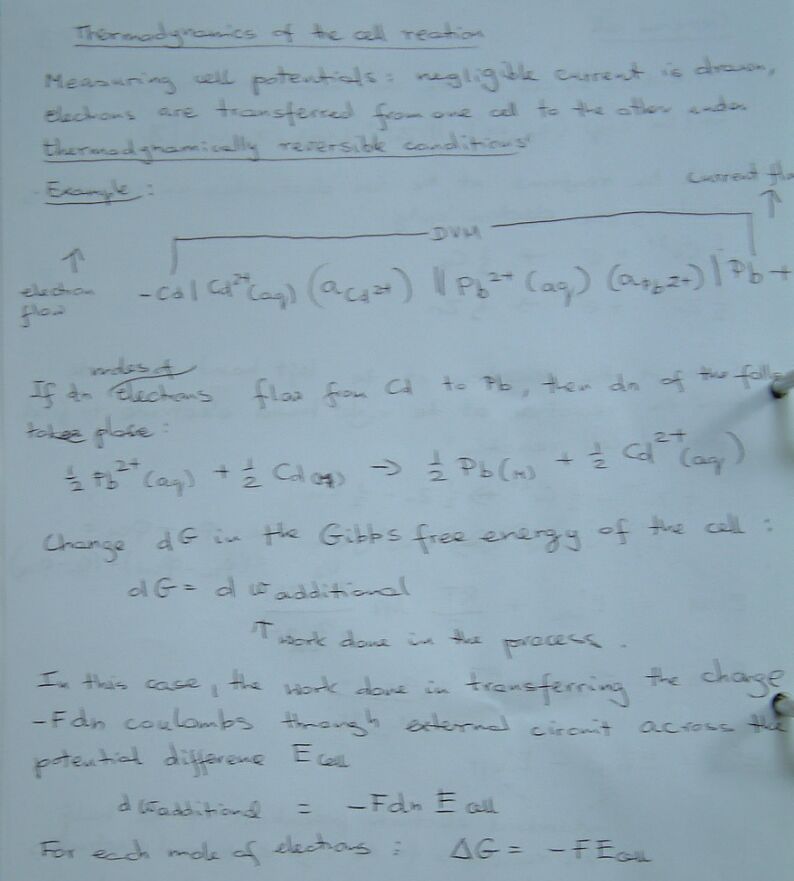 Thermodynamics of the cell reation
Measuring cell potentials: negligible current is drawn,
electrons are transferred from one cell to the other under
thermodynamically reversible conditions
Example:
current flo
DVM
↑ ↑
electron
flow
-Cd | Cd²⁺(aq) (a Cd²⁺) || Pb²⁺ (aq) (a Pb²⁺) | Pb +
moles of
If dn electrons flow from Cd to Pb, then dn of the follo
takes place:
½ Pb²⁺ (aq) + ½ Cd → ½ Pb + ½ Cd²⁺ (aq)
Change dG in the Gibbs free energy of the cell:
dG = d w additional
↑ work done in the process.
In this case, the work done in transferring the charge
-Fdn coulombs through external circuit across the
potential difference E cell
d w additional = -Fdn E cell
For each mole of electrons: ΔG = -FE cell